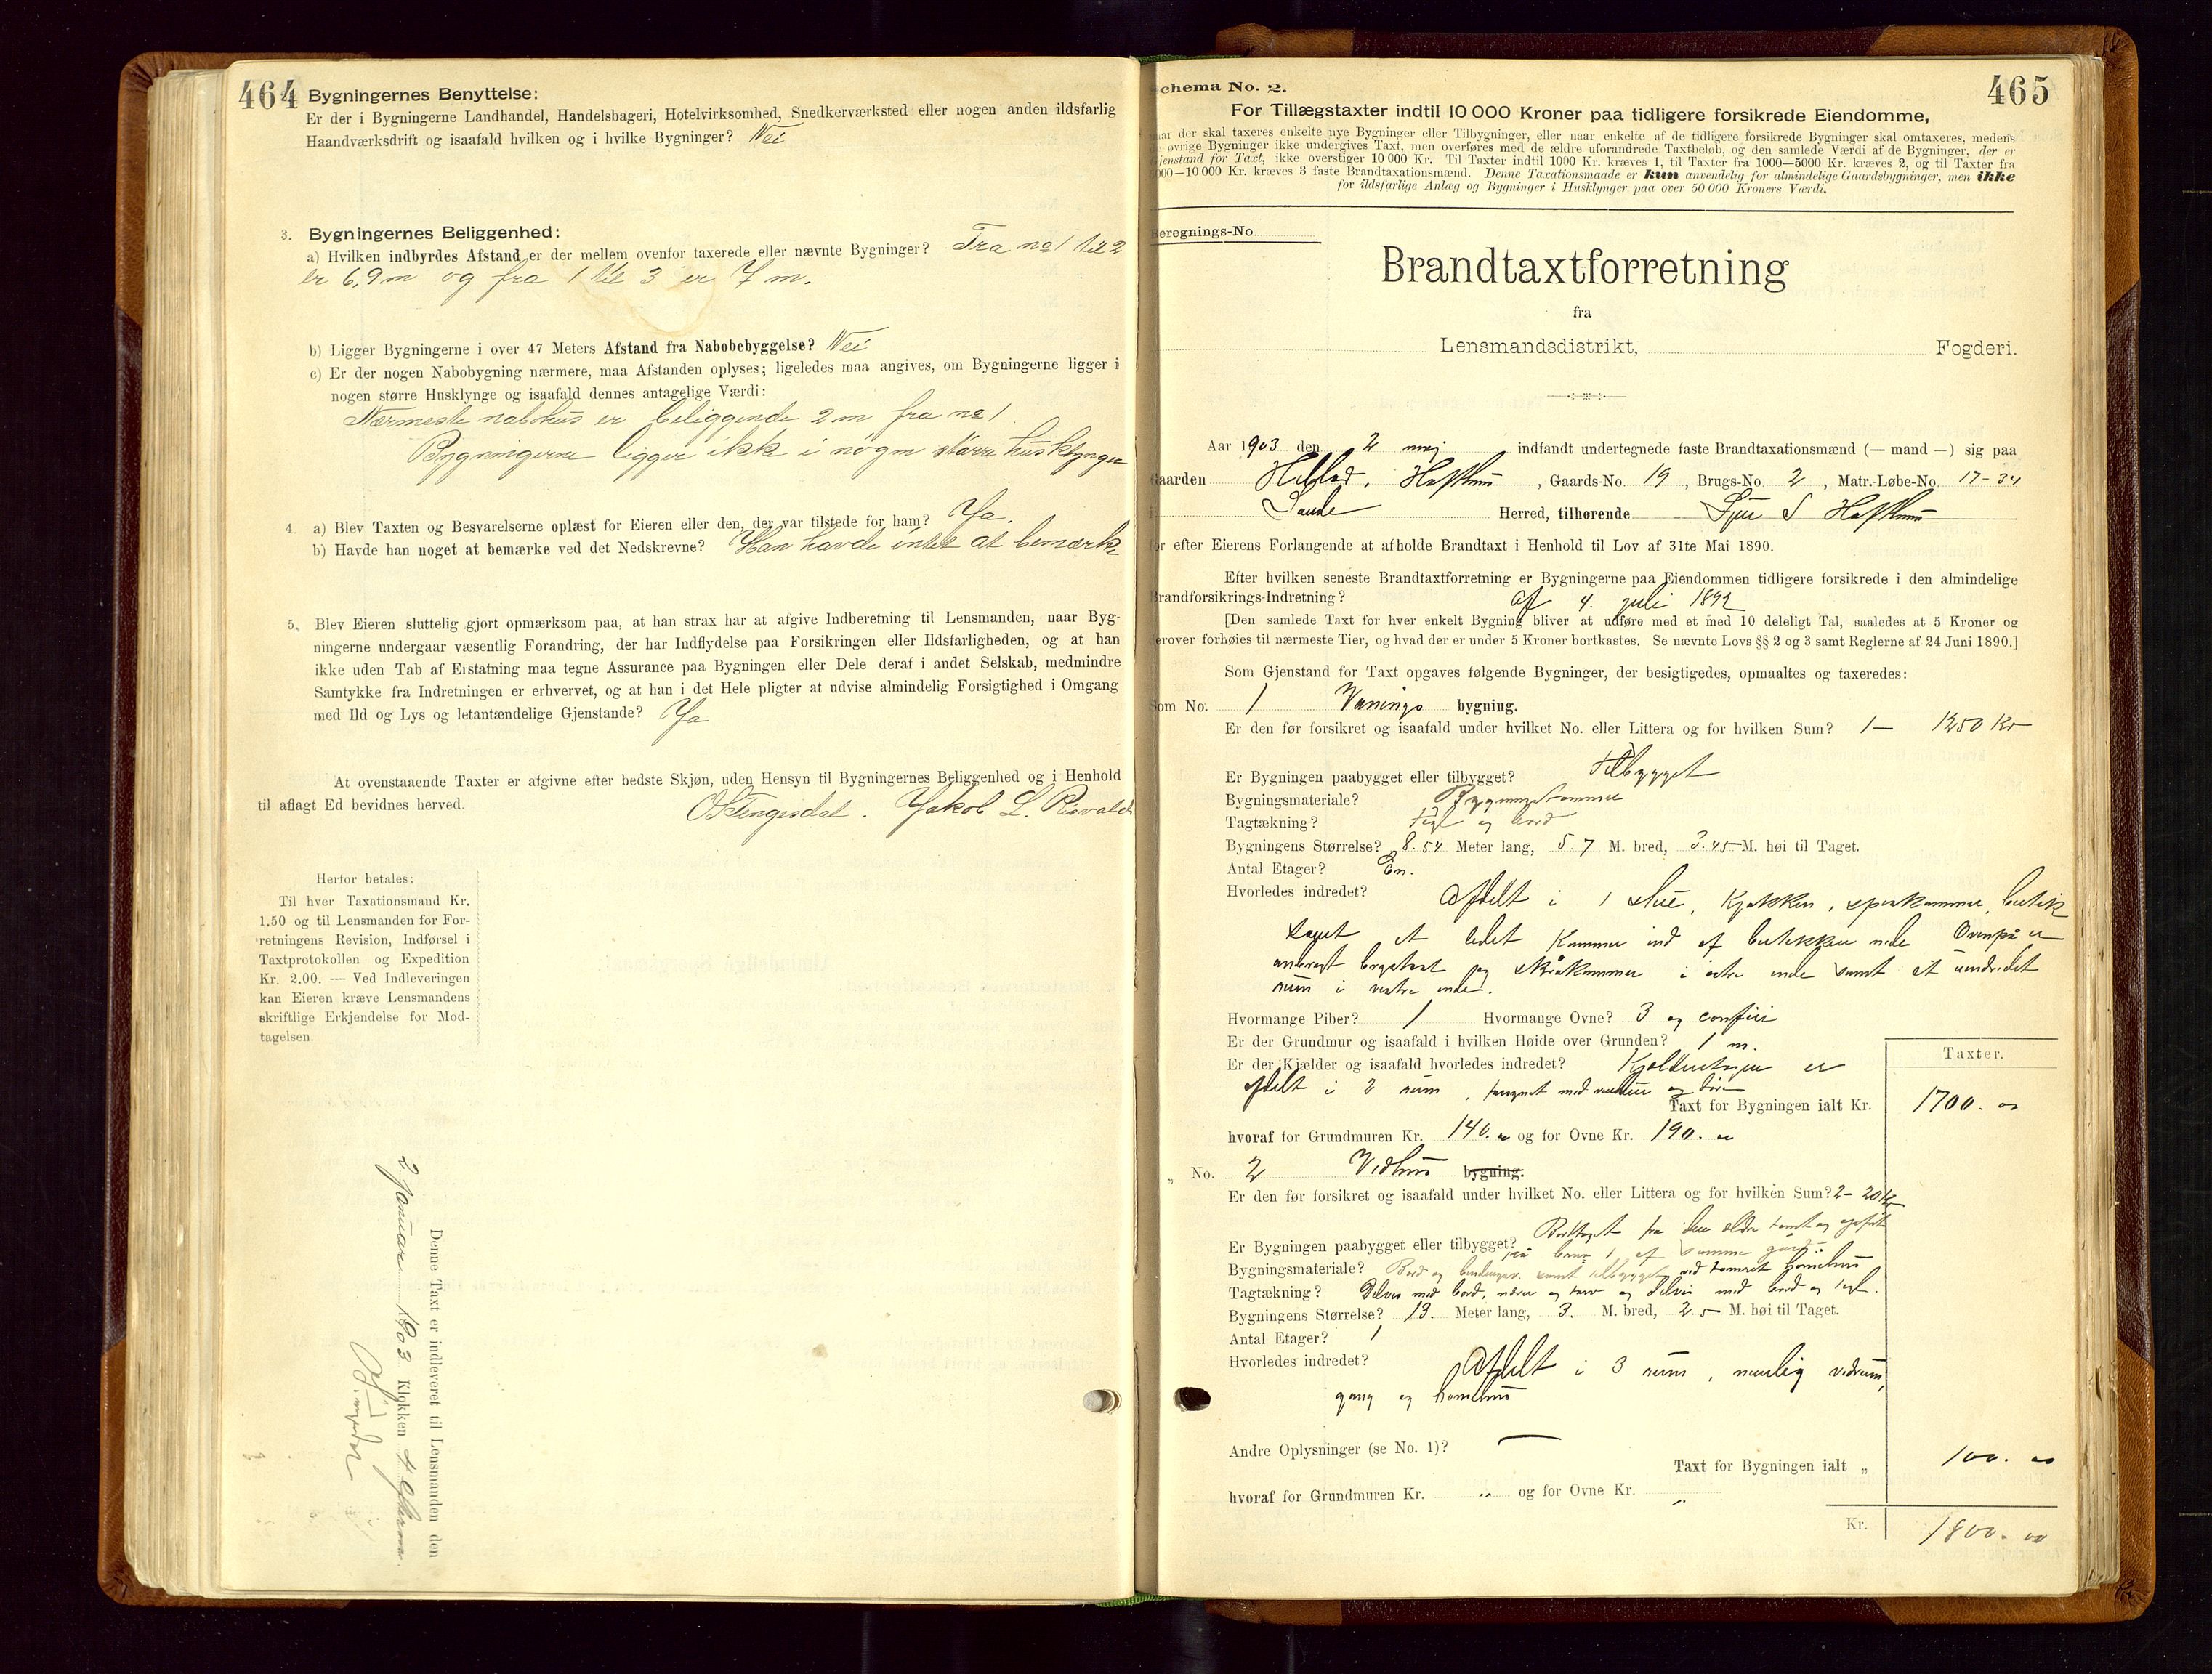 464
Bygningernes Benyttelse:
Er der i Bygningerne Landhandel, Handelsbageri, Hotelvirksomhed, Snedkerværksted eller nogen anden ildsfarlig
Haandværksdrift og isaafald hvilken og i hvilke Bygninger? Nei
3. Bygningernes Beliggenhed:
a) Hvilken indbyrdes Afstand er der mellem ovenfor taxerede eller nævnte Bygninger? Fra no 1 til 2
er 6,9 m og fra 1 til 3 er 7 m.
b) Ligger Bygningerne i over 47 Meters Afstand fra Nabobebyggelse? Nei
c) Er der nogen Nabobygning nærmere, maa Afstanden oplyses; ligeledes maa angives, om Bygningerne ligger i
nogen større Husklynge og isaafald dennes antagelige Værdi:
Nærmeste nabohus er beliggende 2 m fra no 1
Bygningerne ligger ikk i nogen større husklynge
4. a) Blev Taxten og Besvarelserne oplæst for Eieren eller den, der var tilstede for ham? Ja.
b) Havde han noget at bemærke ved det Nedskrevne? Han havde intet at bemærke
5. Blev Eieren sluttelig gjort opmærksom paa, at han strax har at afgive Indberetning til Lensmanden, naar Byg-
ningerne undergaar væsentlig Forandring, der har Indflydelse paa Forsikringen eller Ildsfarligheden, og at han
ikke uden Tab af Erstatning maa tegne Assurance paa Bygningen eller Dele deraf i andet Selskab, medmindre
Samtykke fra Indretningen er erhvervet, og at han i det Hele pligter at udvise almindelig Forsigtighed i Omgang
med Ild og Lys og letantændelige Gjenstande? Ja
At ovenstaaende Taxter er afgivne efter bedste Skjøn, uden Hensyn til Bygningernes Beliggenhed og i Henhold
til aflagt Ed bevidnes herved.
O Stengesdal. Jakob L. Risvold
Herfor betales:
Til hver Taxationsmand Kr.
1.50 og til Lensmanden for For-
retningens Revision, Indførsel i
Taxtprotokollen og Expedition
Kr. 2.00. — Ved Indleveringen
kan Eieren kræve Lensmandens
skriftlige Erkjendelse for Mod-
tagelsen.
Denne Taxt er indleveret til Lensmanden den
2 Januar 1903 Klokken 4
465
chema No. 2.
For Tillægstaxter indtil 10 000 Kroner paa tidligere forsikrede Eiendomme,
aar der skal taxeres enkelte nye Bygninger eller Tilbygninger, eller naar enkelte af de tidligere forsikrede Bygninger skal omtaxeres, medens
øvrige Bygninger ikke undergives Taxt, men overføres med de ældre uforandrede Taxtbeløb, og den samlede Værdi af de Bygninger, der er
jenstand for Taxt, ikke overstiger 10 000 Kr. Til Taxter indtil 1000 Kr. kræves 1, til Taxter fra 1000—5000 Kr. kræves 2, og til Taxter fra
000—10 000 Kr. kræves 3 faste Brandtaxationsmænd. Denne Taxationsmaade er kun anvendelig for almindelige Gaardsbygninger, men ikke
for ildsfarlige Anlæg og Bygninger i Husklynger paa over 50 000 Kroners Værdi.
Beregnings-No.
Brandtaxtforretning
fra
Lensmandsdistrikt, Fogderi.
Aar 1903 den 2 maj indfandt undertegnede faste Brandtaxationsmænd (— mand —) sig paa
Gaarden Hafthus, Gaards-No. 19, Brugs-No. 2, Matr.-Løbe-No. 17-34
Sande Herred, tilhørende S Hafthus
or efter Eierens Forlangende at afholde Brandtaxt i Henhold til Lov af 31te Mai 1890.
Efter hvilken seneste Brandtaxtforretning er Bygningerne paa Eiendommen tidligere forsikrede i den almindelige
Brandforsikrings-Indretning? af 4. juli 1892
[Den samlede Taxt for hver enkelt Bygning bliver at udføre med et med 10 deleligt Tal, saaledes at 5 Kroner og
derover forhøies til nærmeste Tier, og hvad der er under 5 Kroner bortkastes. Se nævnte Lovs §§ 2 og 3 samt Reglerne af 24 Juni 1890.]
Som Gjenstand for Taxt opgaves følgende Bygninger, der besigtigedes, opmaaltes og taxeredes:
Som No. 1 Vanings bygning.
Er den før forsikret og isaafald under hvilket No. eller Littera og for hvilken Sum? 1— 1250 Kr
Er Bygningen paabygget eller tilbygget? tilbygget
Bygningsmateriale? Bygningstømmer
Tagtækning? tegl og bord
Bygningens Størrelse? 8.54 Meter lang, 5.7 M. bred, 3.45 M. høi til Taget.
Antal Etager? En.
Hvorledes indredet? Afdelt i 1 stue, Kjøkken, spiskammer, butik
samt et lidet Kammer ind af butikken nede Ovenpå er
skråkammer i østre ende samt et uindredet
rum i vestre ende.
Hvormange Piber? 1 Hvormange Ovne? 3 og comfür
Er der Grundmur og isaafald i hvilken Høide over Grunden? 1 m.
Er der Kjælder og isaafald hvorledes indredet? Kjelderetagen er
afdelt i 2 rum, med vinduer og døre
Taxter.
Taxt for Bygningen ialt Kr. 1700. 00
hvoraf for Grundmuren Kr. 140. 00 og for Ovne Kr. 190. 00
„ No. 2 Vedhus bygning.
Er den før forsikret og isaafald under hvilket No. eller Littera og for hvilken Sum? 2— 20 Kr
Er Bygningen paabygget eller tilbygget? Borttaget fra den ældre tomt og opført
på brug 1 af samme gård.
Bygningsmateriale? Bord og bindinger samt tilbygget ved tømret hønehus
Tagtækning? Delvis med bord, næver og torv og delvis med bord og tegl.
Bygningens Størrelse? 13. Meter lang, 3. M. bred, 2.5 M. høi til Taget.
Antal Etager? 1
Hvorledes indredet? Afdelt i 3 rum, nemlig vedrum,
gang og hønehus
Andre Oplysninger (se No. 1)? —
Taxt for Bygningen ialt „ 100. 00
hvoraf for Grundmuren Kr. „ og for Ovne Kr. „
Kr. 1800. 00